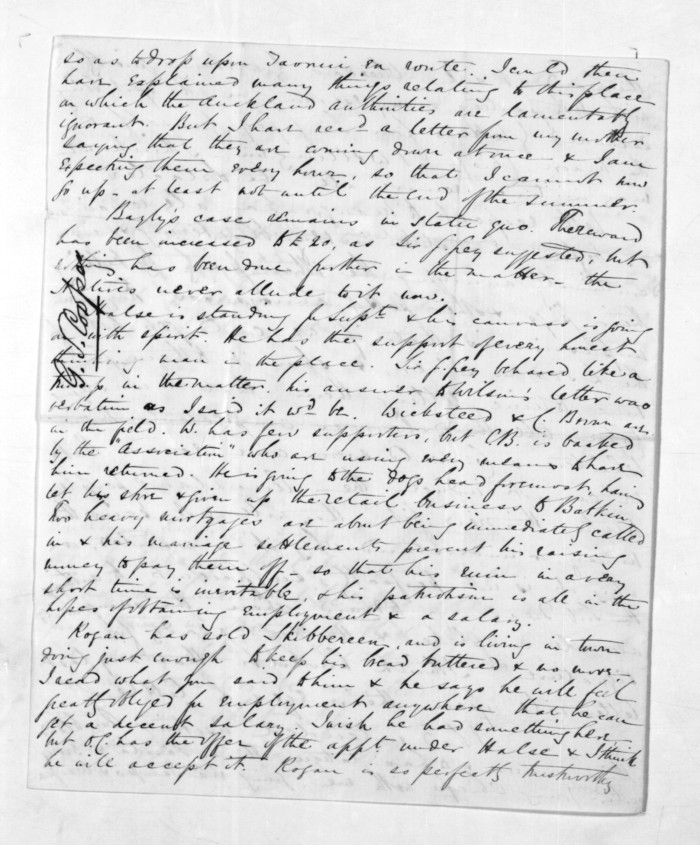 so as to drop upon Taonui en route. I could then
have explained many things relating to this place
on which the Auckland authorities are lamentably
ignorant. But I have recd a letter from my mother
saying that they are coming down at once & I am
expecting them every hour, so that I cannot now
go up - at least not until the end of the summer.
Bayly's case remains in statu quo. The reward
has been increased to £20, as Sir G. Grey suggested, but
nothing has been done further in the matter - the
natives never allude to it now.
Halse is standing for Supt & his canvass is going
on with spirit. He has the support of every honest
thinking man in the place. Sir G. Grey behaved like a
in the matter. his answer to Wilson's letter was
verbatim as I said it wd be. Wicksteed & C. Brown are
in the field. W. has few supporters, but CB. is backed
by the "Association" who are using every means to have
him returned. He is going to the dogs head foremost, having
let his store & given up the retail business to Batkin,
two heavy mortgages are about being immediately called
in & his marriage settlements prevent his raising
money to pay them off - so that his ruin in a very
short time is inevitable, & his patriotism is all in the
hopes of obtaining employment & a salary.
Rogan has sold Skibbereen, and is living in town
doing just enough to keep his bread buttered & no more.
I read what you said to him & he says he will feel
greatly obliged for employment anywhere that he can
get a decent salary. I wish he had something here
but O.C. has the offer of the appt under Halse & I think
he will accept it. Rogan is so perfectly trustworthy
G. S. Cooper